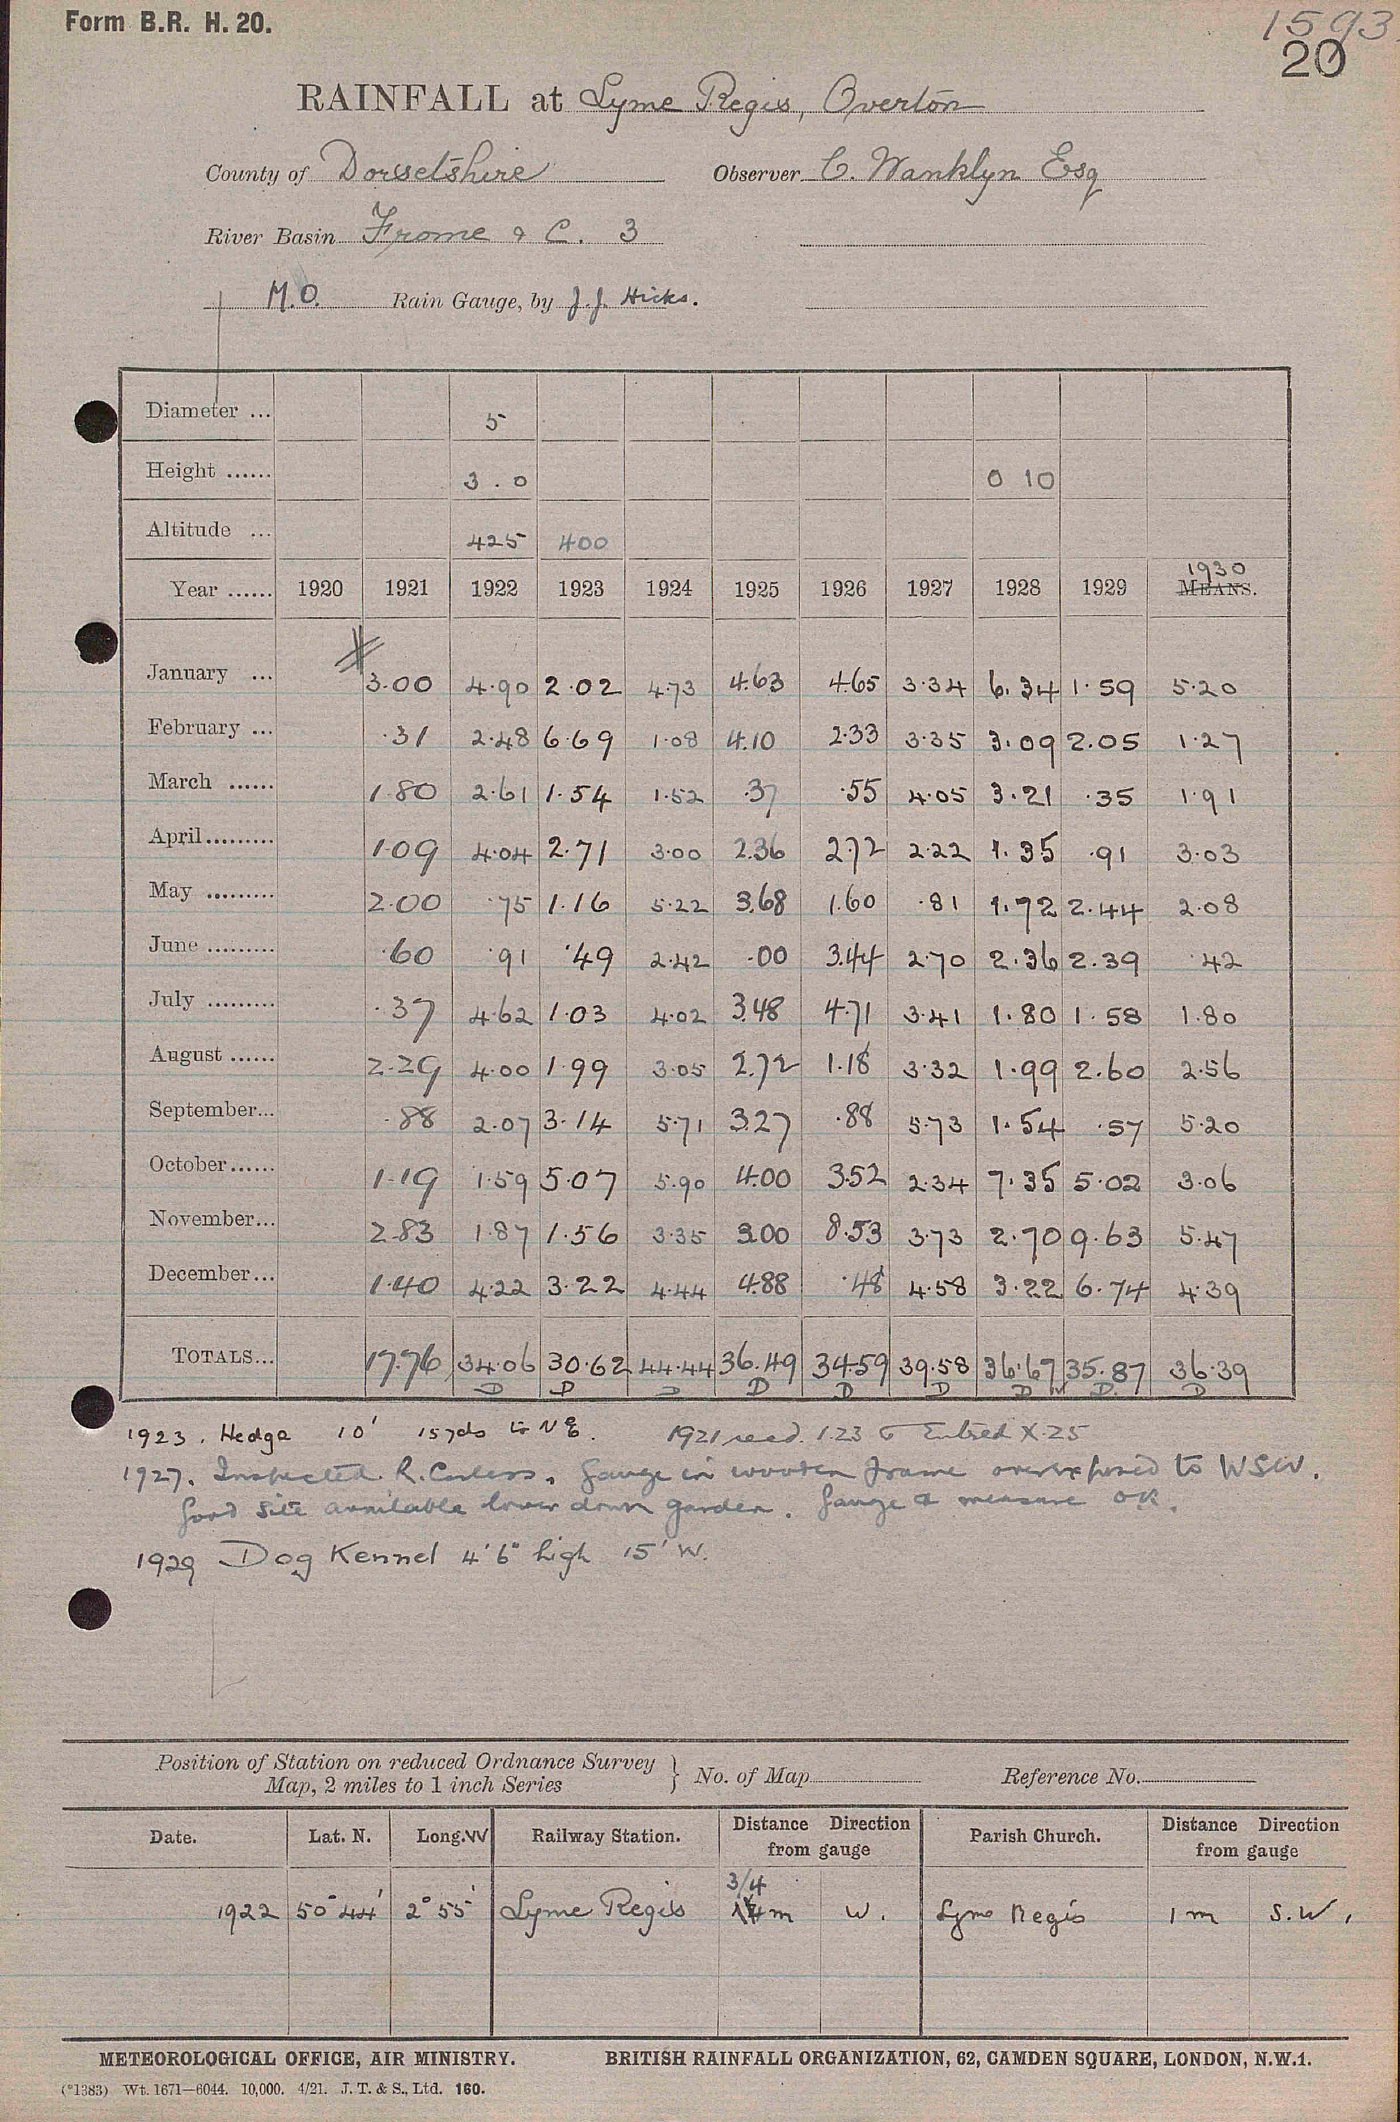 Form B.R. H. 20.
1593.
20
RAINFALL at Lyme Regis, Overton
County of Dorsetshire Observer C. Wanklyn Esq
River Basin Frome & C. 3
M.O. Rain Gauge, by J.J. Hicks.
Diameter ... 5
Height ...... 3.0 0 10
Altitude ... 425 400
1930
Year ...... 1920 1921 1922 1923 1924 1925 1926 1927 1928 1929 MEANS.
January ... 3.00 4.90 2.02 4.73 4.63 4.65 3.34 6.34 1.59 5.20
February ... .31 2.48 6.69 1.08 4.10 2.33 3.35 3.09 2.05 1.27
March ...... 1.80 2.61 1.54 1.52 .37 .55 4.05 3.21 .35 1.91
April......... 1.09 4.04 2.71 3.00 2.36 2.72 2.22 1.35 .91 3.03
May ......... 2.00 .75 1.16 5.22 3.68 1.60 .81 1.72 2.44 2.08
June ......... .60 .91 .49 2.42 .00 3.44 2.70 2.36 2.39 .42
July ......... .37 4.62 1.03 4.02 3.48 4.71 3.41 1.80 1.58 1.80
August ...... 2.29 4.00 1.99 3.05 2.72 1.18 3.32 1.99 2.60 2.56
September... .88 2.07 3.14 5.71 3.27 .88 5.73 1.54 .57 5.20
October...... 1.19 1.59 5.07 5.90 4.00 3.52 2.34 7.35 5.02 3.06
November... 2.83 1.87 1.56 3.35 3.00 8.53 3.73 2.70 9.63 5.47
December... 1.40 4.22 3.22 4.44 4.88 .48 4.58 3.22 6.74 4.39
TOTALS... 17.76 34.06 30.62 44.44 36.49 34.59 39.58 36.67 35.87 36.39
D D D D D D D D D
1923. Hedge 10' 15yds to NE. 1921 recd. 1.23 Entred X.25
1927. Inspected R. Corless. Gauge in wooden frame overexposed to WSW.
Good site available lower down garden. Gauge & measure OK.
1929 Dog Kennel 4'6" high 15' W.
Position of Station on reduced Ordnance Survey
Map, 2 miles to 1 inch Series } No. of Map Reference No.
Date. Lat. N. Long. W Railway Station. Distance Direction from gauge Parish Church. Distance Direction from gauge
3/4
1922 50° 44' 2° 55' Lyme Regis m W. Lyme Regis 1 m S.W.
METEOROLOGICAL OFFICE, AIR MINISTRY. BRITISH RAINFALL ORGANIZATION, 62, CAMDEN SQUARE, LONDON, N.W.1.
(*1383) Wt. 1671—6044. 10,000. 4/21. J. T. & S., Ltd. 160.